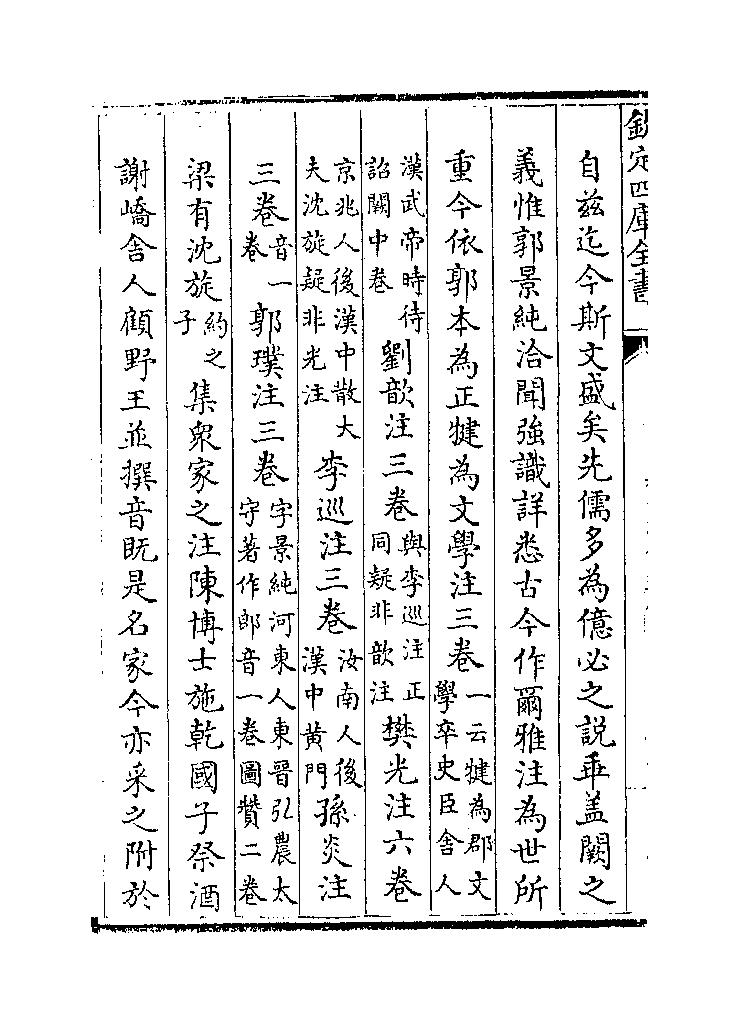 欽定四庫全書
自兹迄今斯文盛矣先儒多為億必之説乖盖闕之
義惟郭景純洽聞強識詳悉古今作爾雅注為世所
重今依郭本為正犍為文學注三卷一云犍為郡文學卒史臣舍人
漢武帝時待詔闕中卷劉歆注三卷與李巡注正同疑非歆注樊光注六卷
京兆人後漢中散大夫沈旋疑非光注李巡注三卷汝南人後漢中黄門孫炎注
三卷音一卷郭璞注三卷字景純河東人東晉弘農太守著作郎音一卷圖贊二卷
梁有沈旋約之子集衆家之注陳博士施乾國子祭酒
謝嶠舍人顧野王並撰音既是名家今亦采之附於